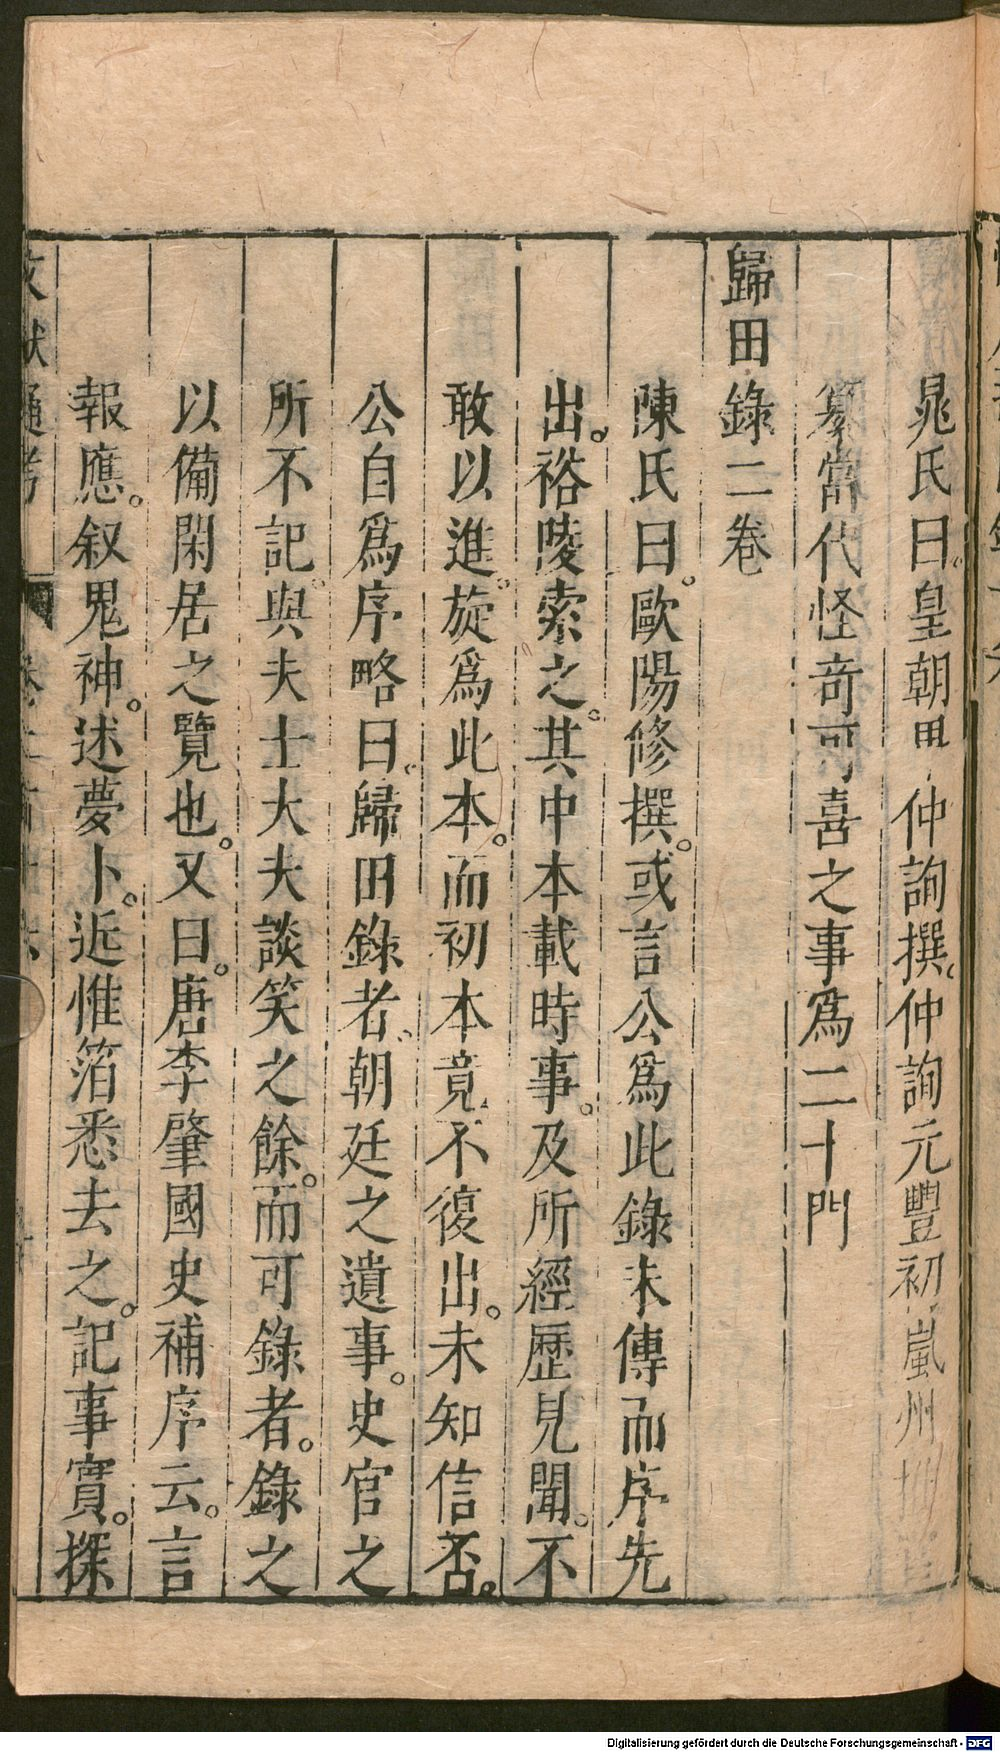 晁氏曰。皇朝畢仲詢撰。仲詢元豐初嵐州推
纂當代怪竒可喜之事爲二十門
歸田錄二卷
陳氏曰。歐陽修撰。或言公爲此錄未傳而序先
出。裕陵索之。其中本載時事。及所經歷見聞。不
敢以進。旋爲此本。而初本竟不復出。未知信否。
公自爲序略曰。歸田錄者。朝廷之遺事。史官之
所不記。與夫士大夫談笑之餘。而可錄者。錄之
以備閑居之覽也。又曰。唐李肇國史補序云。言
報應。叙鬼神。述夢卜。近惟箔悉去之。記事實。探
文獻通考 卷二百十六
Digitalisierung gefördert durch die Deutsche Forschungsgemeinschaft - DFG